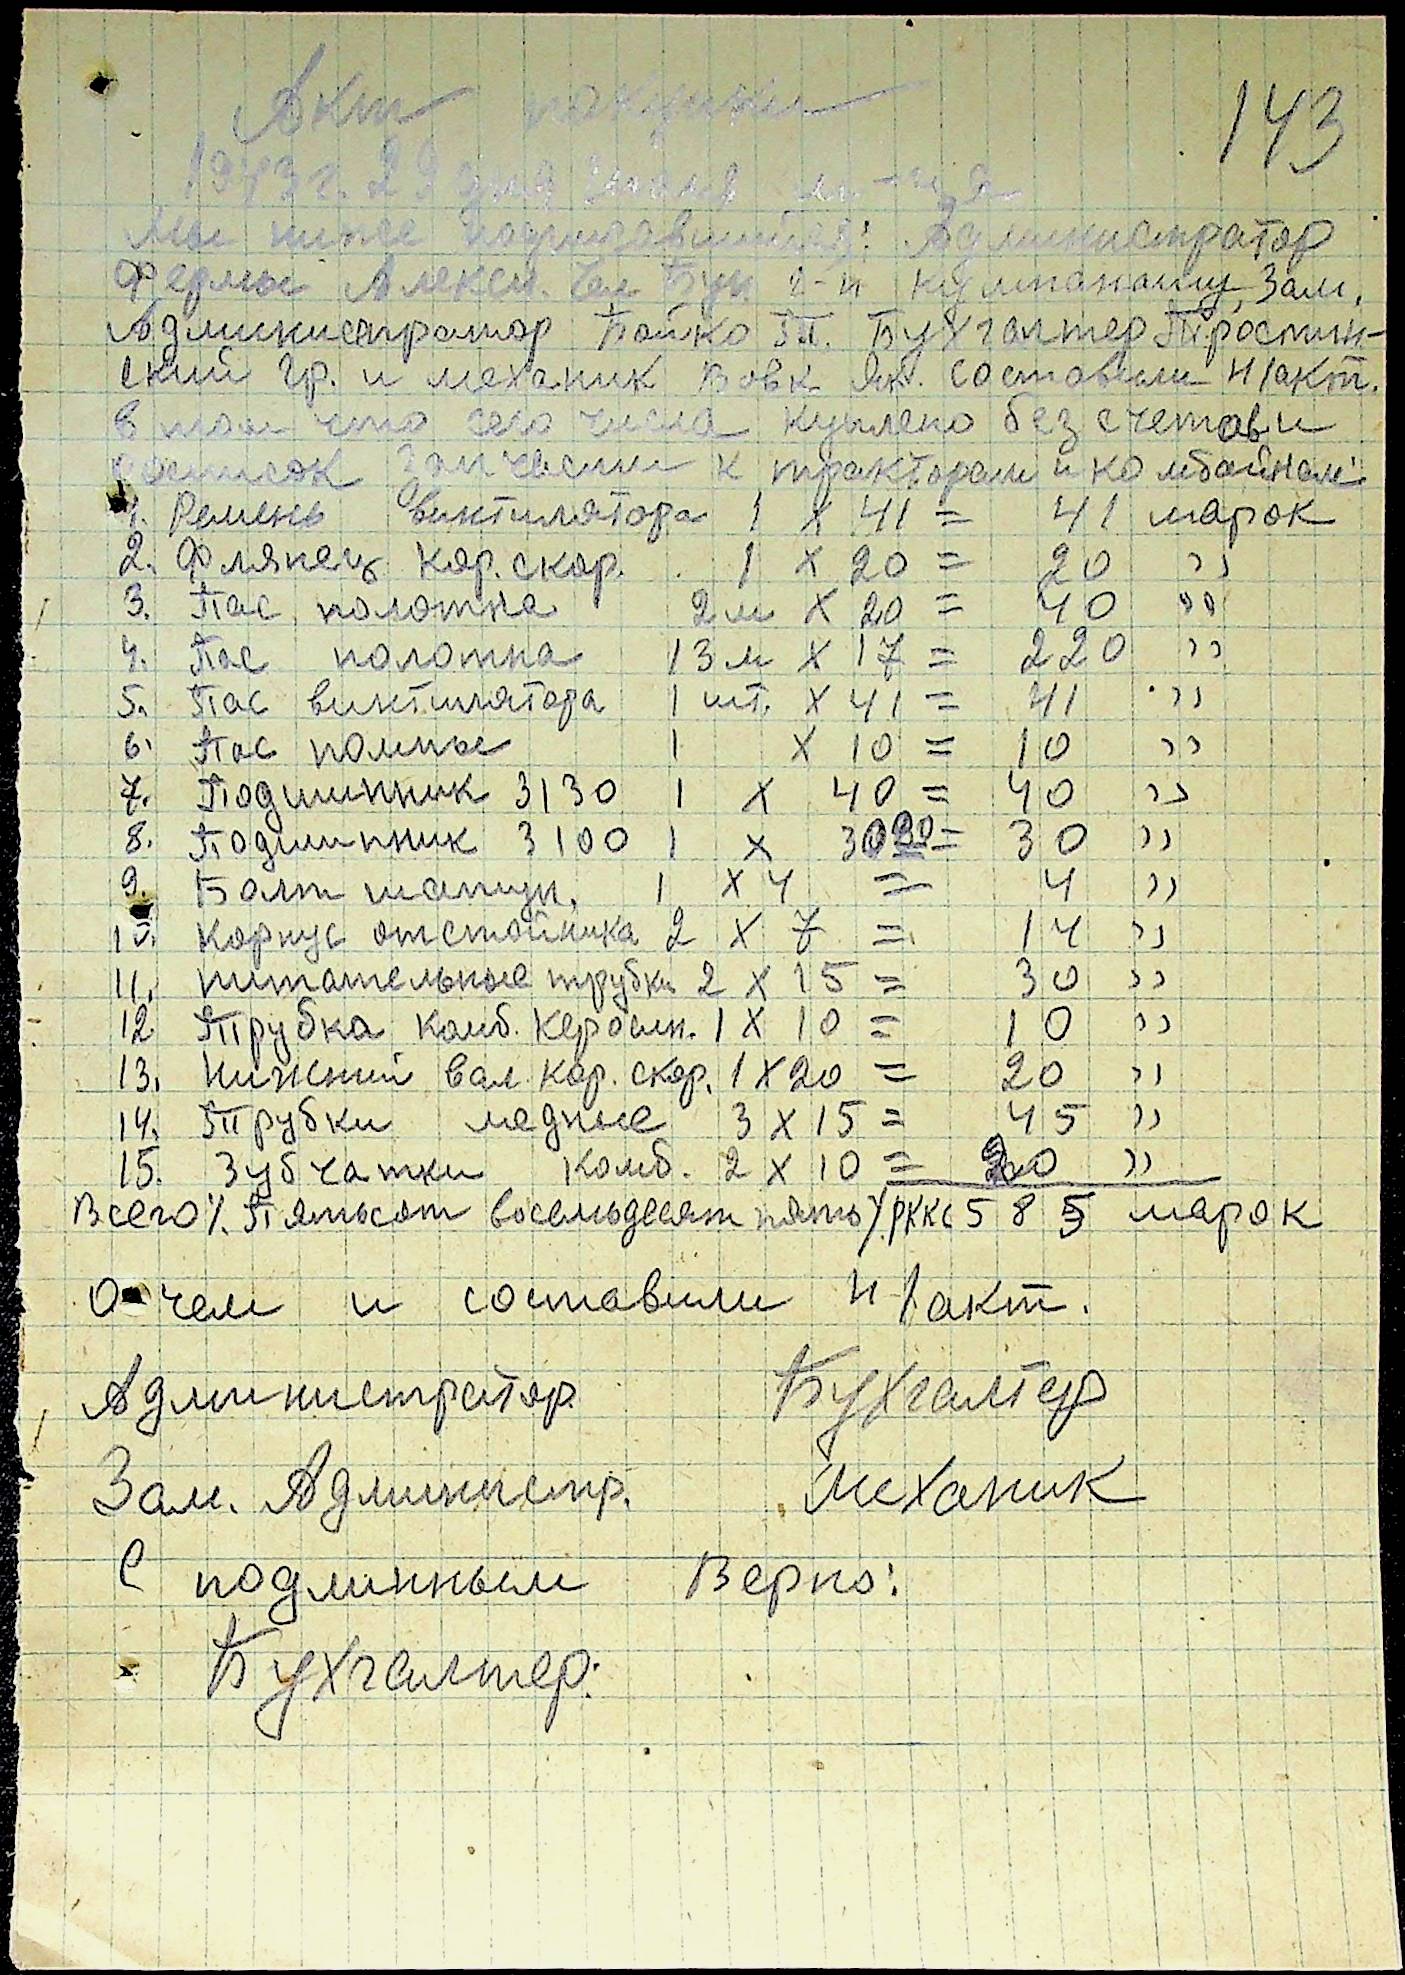 143
Акт покупки
1943 г. 29 дня июля м-ца
Мы ниже подписавшиеся: Администратор
Фермы Алексан. Чел Бун 2-й Зам.
Администратор Бойко П. Бухгалтер Тростин-
ский Гр. и механик Вовк Як. составили н/акт.
в том что сего числа куплено без счетов и
росписок Запчасти к тракторам и комбайнам:
1. Ремень винтилятора 1 x 41 = 41 марок
2. Флянец кор. скор. 1 x 20 = 20 ,,
3. Пас полотна 2 м x 20 = 40 ,,
4. Пас полотна 13 м x 17 = 220 ,,
5. Пас винтилятора 1 шт. x 41 = 41 ,,
6. Пас помпы 1 x 10 = 10 ,,
7. Подшипник 3130 1 x 40 = 40 ,,
8. Подшипник 3100 1 x 30 = 30 ,,
9. Болт шатун. 1 x 4 = 4 ,,
10. Корпус отстойника 2 x 7 = 14 ,,
11. питательные трубки 2 x 15 = 30 ,,
12. Трубка комб. керосин. 1 x 10 = 10 ,,
13. Нижний вал кор. скор. 1 x 20 = 20 ,,
14. Трубки медные 3 x 15 = 45 ,,
15. Зубчатки комб. 2 x 10 = 20 ,,
Всего %. Пятьсот восемьдесят пять) РККС 585 марок
О чем и составили н/акт.
Администратор Бухгалтер
Зам. Администр. Механик
С подлинным Верно:
Бухгалтер: